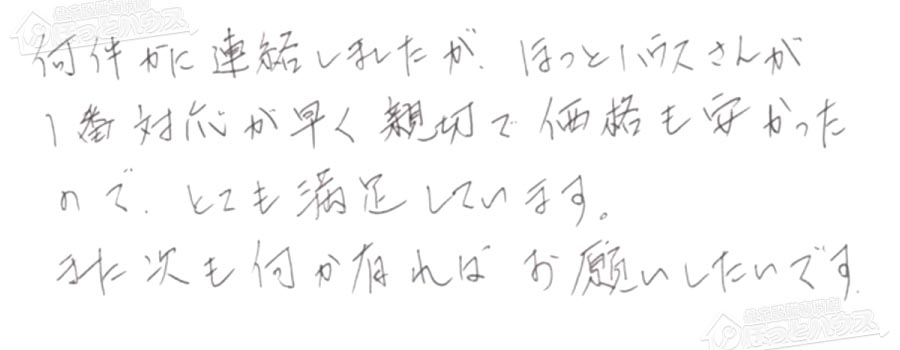 何件かに連絡しましたが、ほっとハウスさんが
1番対応が早く親切で価格も安かった
ので、とても満足しています。
また次も何か有ればお願いしたいです。
住宅設備専門店
ほっとハウス